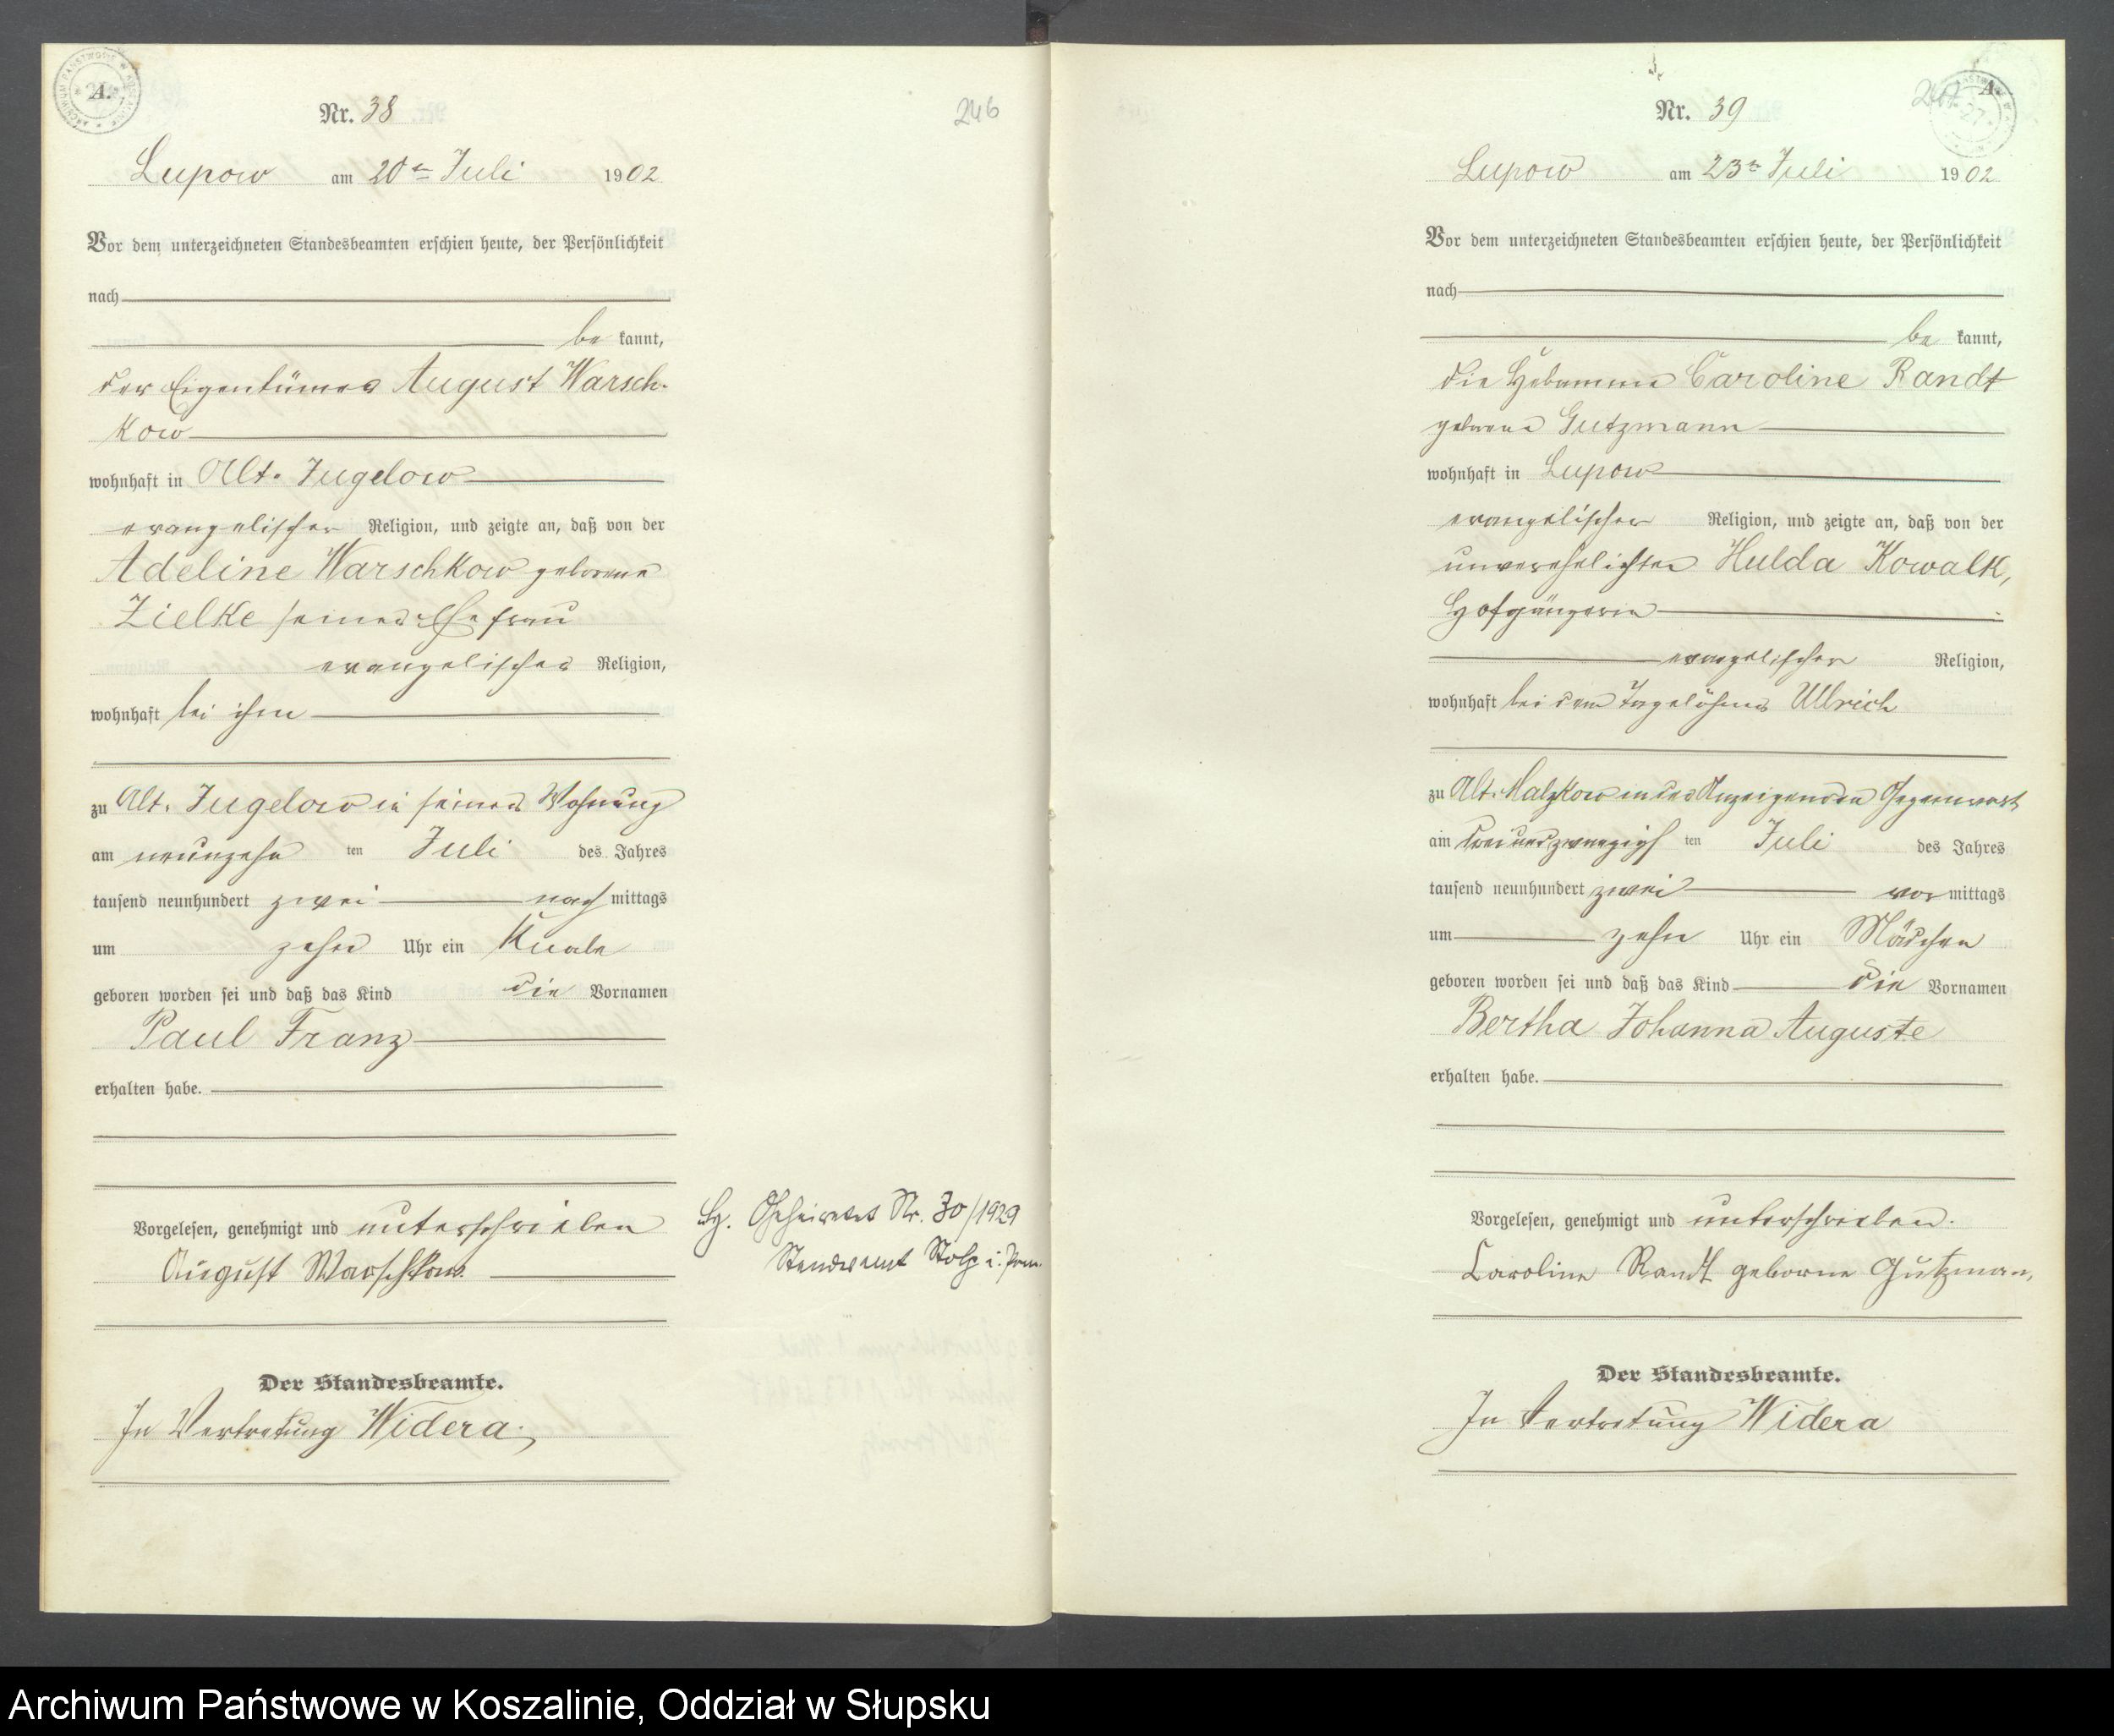 A.
Nr. 38
246
Lupow am 20ten Juli 1902
Vor dem unterzeichneten Standesbeamten erschien heute, der Persönlichkeit
nach
be kannt,
der Eigentümer August Warsch-
kow
wohnhaft in Alt-Jugelow
evangelischer Religion, und zeigte an, daß von der
Adeline Warschkow geborene
Zielke seiner Ehefrau
evangelischer Religion,
wohnhaft bei ihm
zu Alt-Jugelow in seiner Wohnung
am neunzehn ten Juli des Jahres
tausend neunhundert zwei nach mittags
um zehn Uhr ein Knabe
geboren worden sei und daß das Kind die Vornamen
Paul Franz
erhalten habe.
Vorgelesen, genehmigt und unterschrieben
August Warschkow
Der Standesbeamte.
In Vertretung Widera.
Nr. 30/1929
Standesamt Stolp i. Pom.
A.
Nr. 39
Lupow am 23n Juli 1902
Vor dem unterzeichneten Standesbeamten erschien heute, der Persönlichkeit
nach
be kannt,
die Hebamme Caroline Randt
geborene Gutzmann
wohnhaft in Lupow
evangelischer Religion, und zeigte an, daß von der
unverehelichten Hulda Kowalk,
Hofgängerin
evangelischer Religion,
wohnhaft bei dem Tagelöhner Ullrich
zu Alt-Malzkow in der Anzeigenden Gegenwart
am dreiundzwanzigs ten Juli des Jahres
tausend neunhundert zwei vor mittags
um zehn Uhr ein Mädchen
geboren worden sei und daß das Kind die Vornamen
Bertha Johanna Auguste
erhalten habe.
Vorgelesen, genehmigt und unterschrieben.
Caroline Randt geborne Gutzman,
Der Standesbeamte.
In Vertretung Widera
Archiwum Państwowe w Koszalinie, Oddział w Słupsku